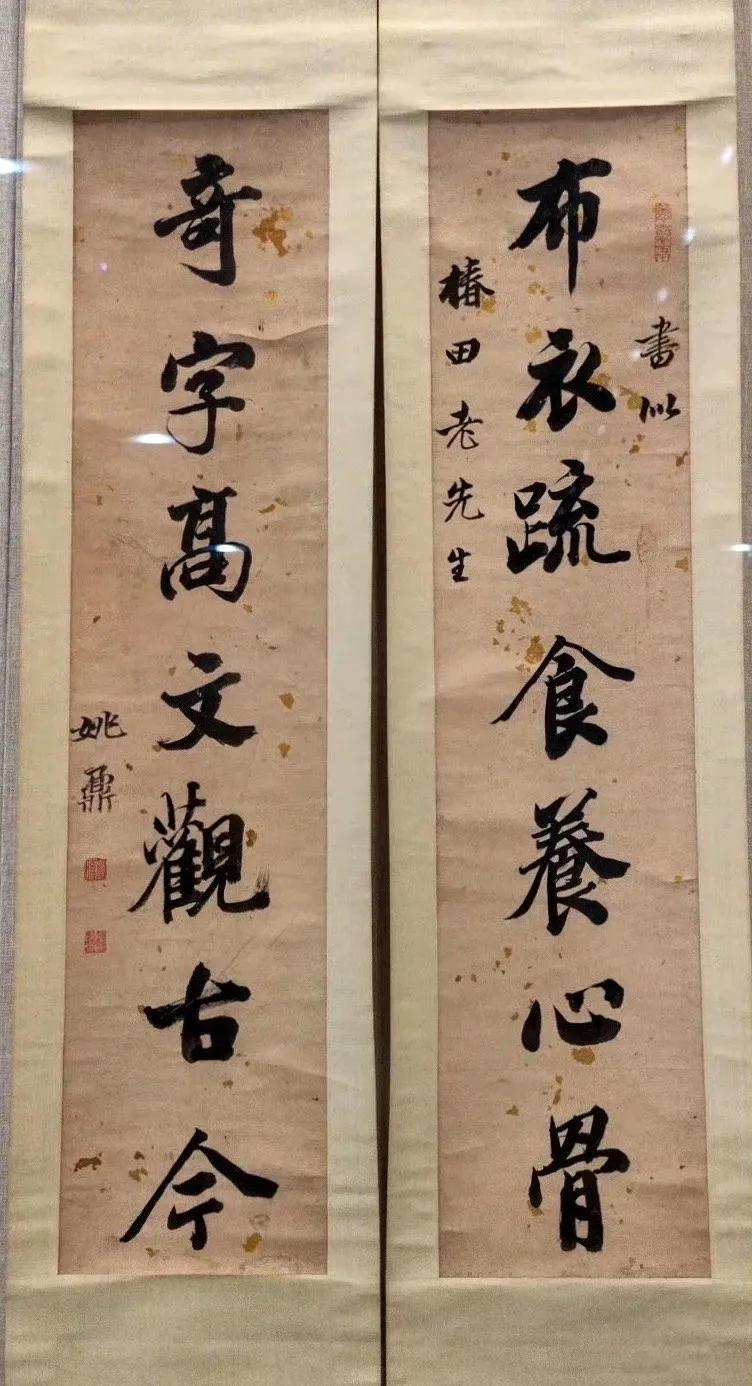 書似
布衣疏食養心骨
椿田老先生
奇字高文觀古今
姚鼐